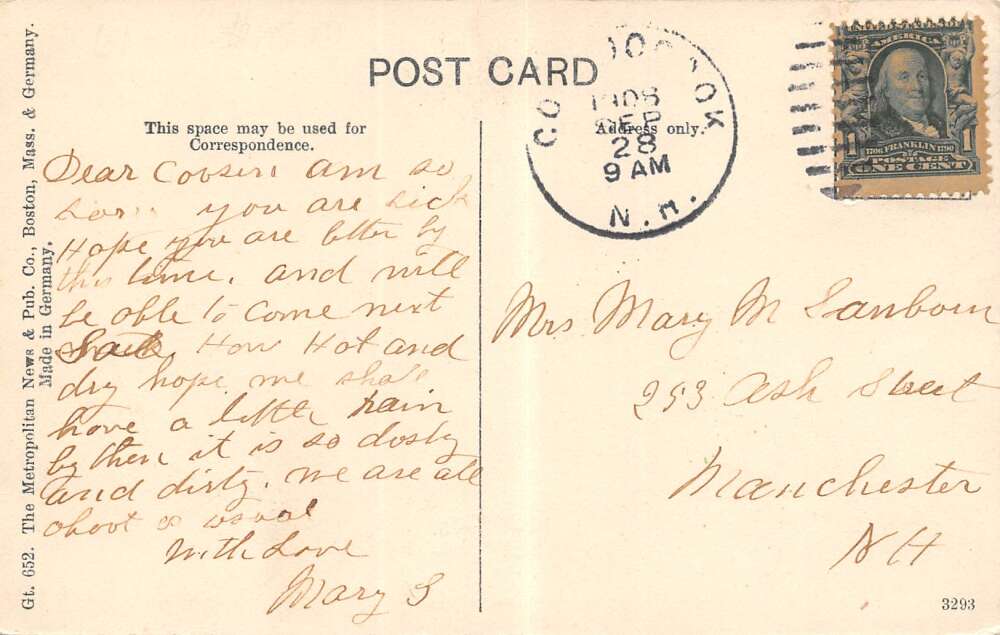 POST CARD
This space may be used for
Correspondence.
Address only.
Gt. 652. The Metropolitan News & Pub. Co., Boston, Mass. & Germany.
Made in Germany.
CO OOCOOK
1908
SEP
28
9 AM
N.H.
AMERICA
1 1
1706 FRANKLIN 1790
POSTAGE
ONE CENT
Dear Cousin am so
you are sick
Hope you are better by
this time. and will
be able to come next
Sat. How Hot and
dry hope we shall
have a little rain
by then it is so dusty
and dirty. We are all
about as usual
With Love
Mary S
Mrs Mary M Sanborn
253 Ash Street
Manchester
NH
3293